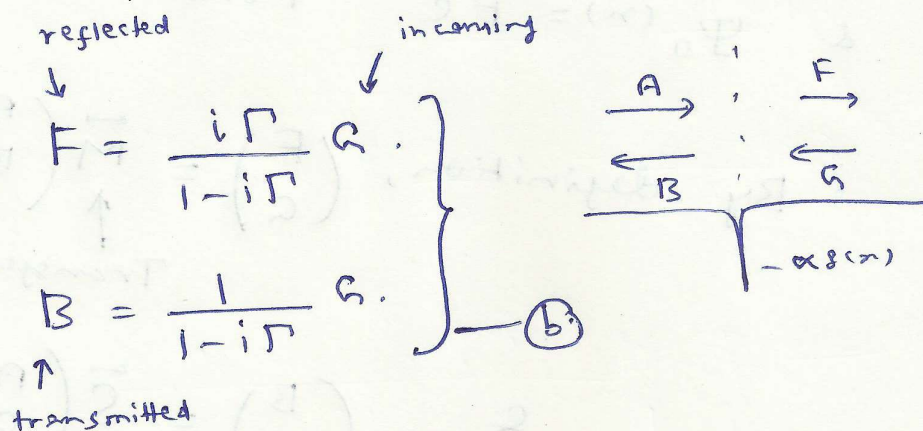 reflected
incoming
F = iΓ / (1 - iΓ) G.
B = 1 / (1 - iΓ) G.
(b)
transmitted
A
F
B
G
- αδ(x)